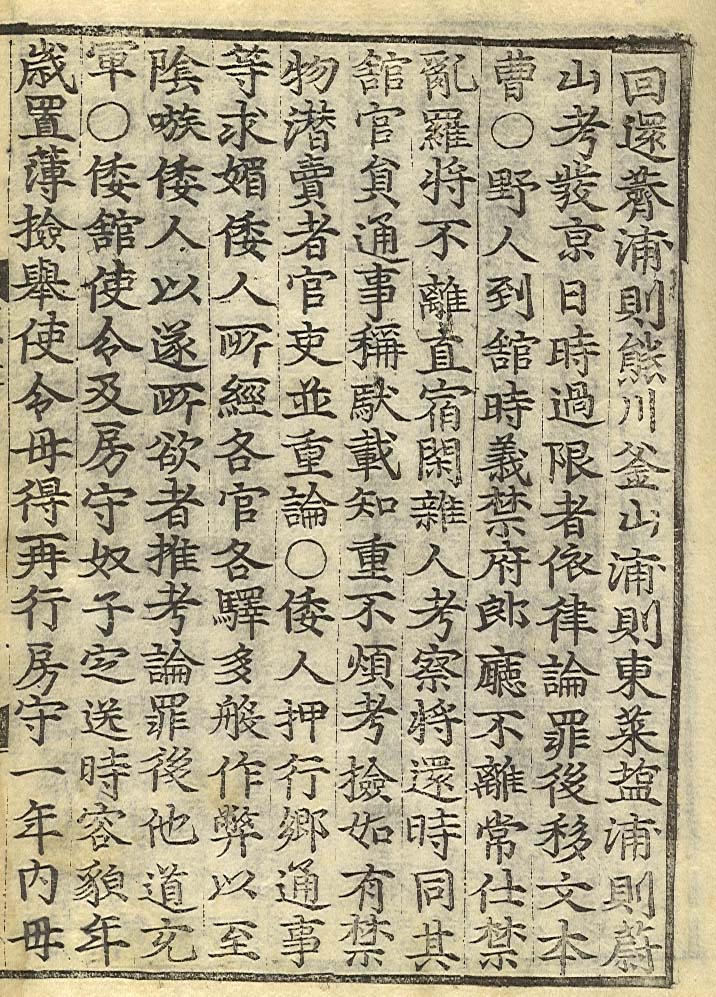 回還薺浦則熊川釜山浦則東萊塩浦則蔚
山考發京日時過限者依律論罪後移文本
曹○野人到舘時義禁府郎廳不離常仕禁
亂羅將不離直宿閑雜人考察將還時同其
舘官負通事稱馱載知重不煩考撿如有禁
物潜賣者官吏並重論○倭人押行鄉通事
等求媚倭人所經各官各驛多般作弊以至
陰嗾倭人以遂所欲者推考論罪後他道充
軍○倭舘使令及房守奴子定送時容貌年
歲置薄撿舉使令毋得再行房守一年內毋